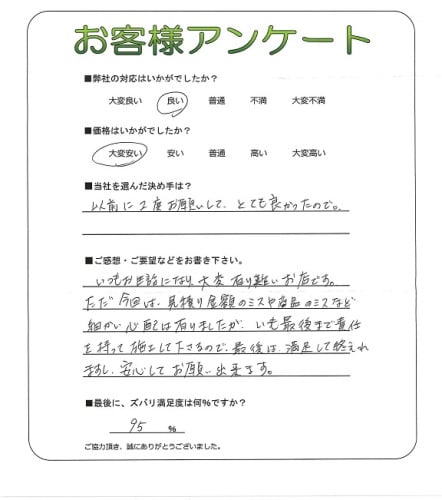 お客様アンケート
■弊社の対応はいかがでしたか?
大変良い 良い 普通 不満 大変不満
■価格はいかがでしたか?
大変安い 安い 普通 高い 大変高い
■当社を選んだ決め手は?
以前に2度お願いして、とても良かったので。
■ご感想・ご要望などをお書き下さい。
いつもお世話になり、大変有り難いお店です。
ただ今回は、見積り金額のミスや商品のミスなど
細かい心配は有りましたが、いも最後まで責任
を持って施工して下さるので、最後は、満足して終えれ
ますし、安心してお願い出来ます。
■最後に、ズバリ満足度は何%ですか?
95 %
ご協力頂き、誠にありがとうございました。